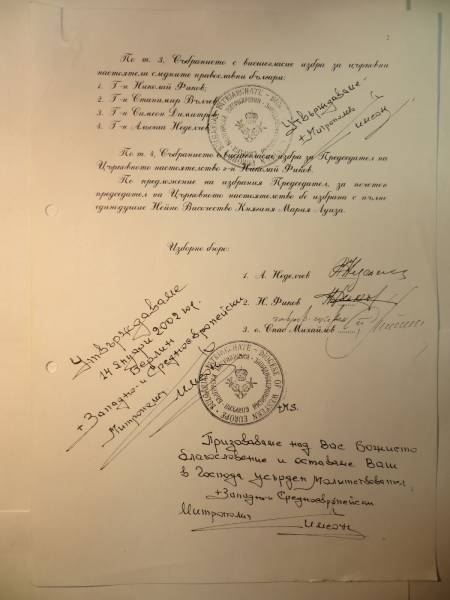 2
По т. 3, Събранието с висшегласие избра за църковни
настоятели следните православни българи:
1. Г-н Николай Фиков;
2. Г-н Станимир Вълчев
3. Г-н Симеон Димитров
4. Г-н Ангел Неделчев
Утвърждаваме
+ Митрополит
Симеон
По т. 4, Събранието с висшегласие избра за Председател на
Църковното настоятелство г-н Николай Фиков.
По предложение на избрания Председател, за почетен
председател на Църковното настоятелство бе избрана с пълно
единодушие Нейно Височество Княгиня Мария Луиза.
Изборно бюро:
1. А. Неделчев
2. Н. Фиков
3. о. Спас Михайлов
Утвърждаваме
14 януари 2002 г.
Берлин
+ Западно- и Средноевропейски
Митрополит Симеон
BULGARIAN PATRIARCHATE - DIOCESE OF WESTERN EUROPE
+M.S.
Призоваваме над Вас Божието
благословение и оставаме Ваш
в Господа усърден молитствовател
+ Западно и Средноевропейски
Митрополит
Симеон